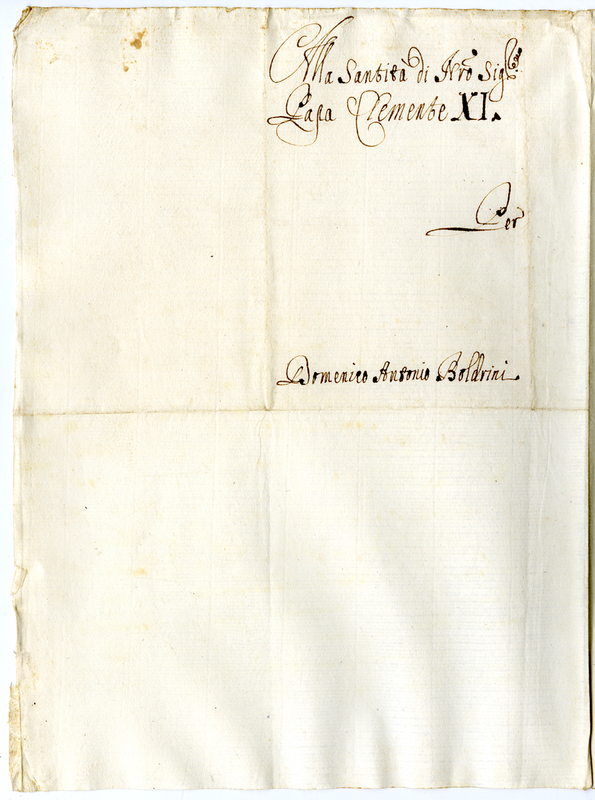 Alla Santità di Nro Sig.re
Papa Clemente XI.
Per
Domenico Antonio Boldrini